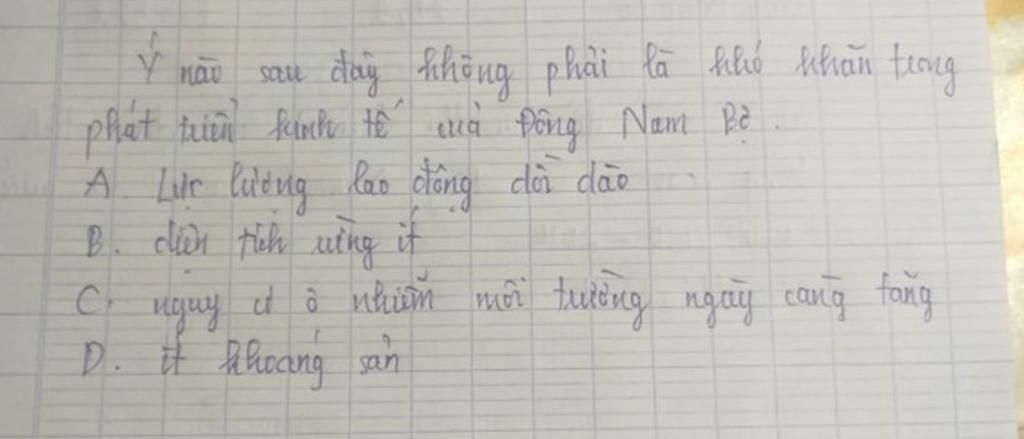 Ý nào sau đây không phải là khó khăn trong
phát triển kinh tế của Đông Nam Bộ.
A. Lực lượng lao động dồi dào
B. diện tích rừng ít
C. nguy cơ ô nhiễm môi trường ngày càng tăng
D. ít khoáng sản